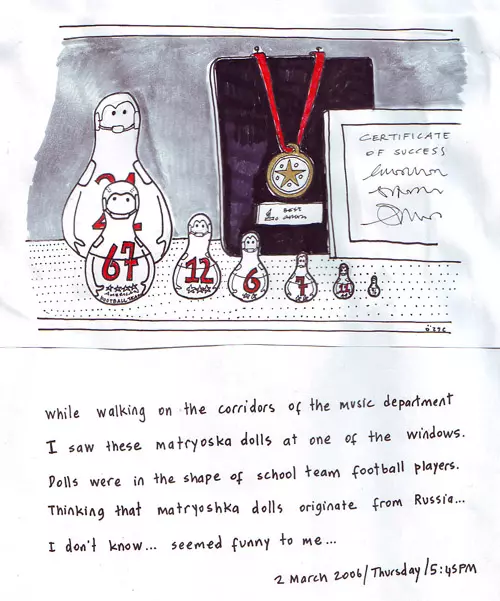 CERTIFICATE
OF SUCCESS
BEST
67
12
6
7
AMERICAN
FOOTBALL TEAM
while walking on the corridors of the music department
I saw these matryoska dolls at one of the windows.
Dolls were in the shape of school team football players.
Thinking that matryoshka dolls originate from Russia...
I don't know... seemed funny to me...
2 March 2006/Thursday/5:45PM